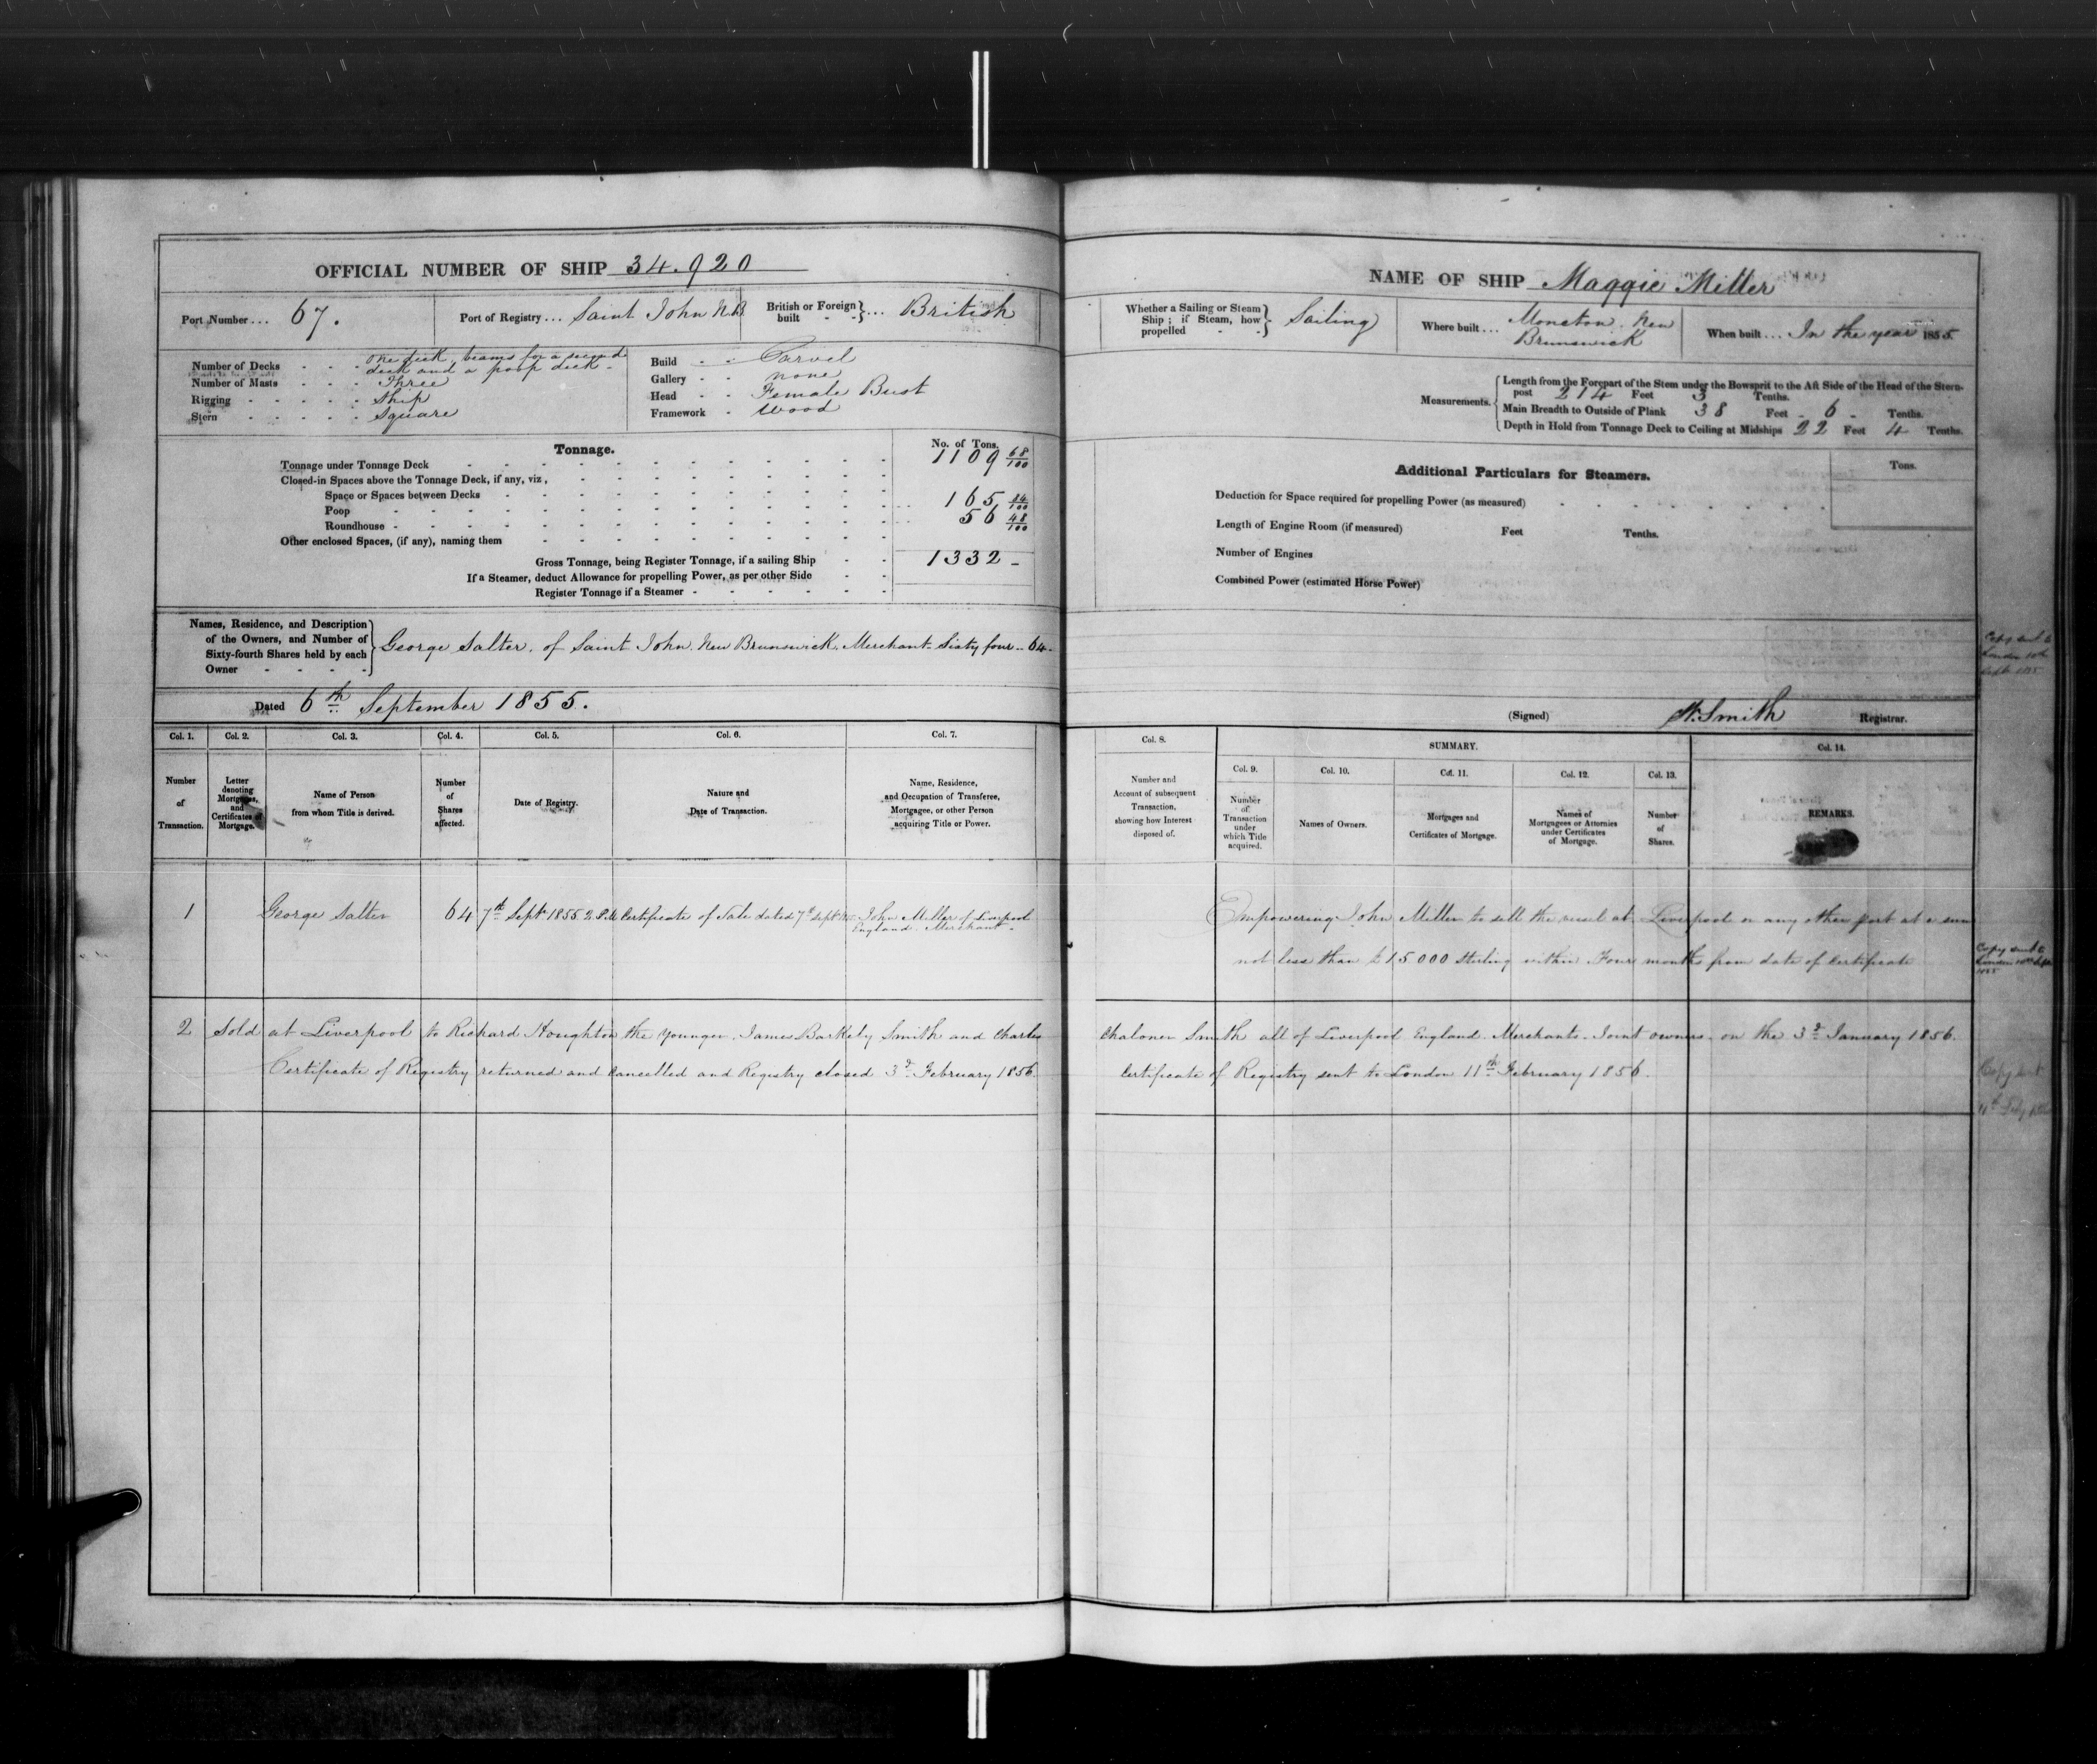 OFFICIAL NUMBER OF SHIP 34.920
Port Number ... 67.
Port of Registry ... Saint John N.B.
British or Foreign built - - } ... British
Number of Decks - - - One deck, beams for a second deck and a poop deck -
Number of Masts - - - Three
Rigging - - - - - Ship
Stern - - - - - Square
Build - - Carvel
Gallery - - none
Head - - Female Bust
Framework - Wood
Tonnage.
No. of Tons.
Tonnage under Tonnage Deck 1109 68/100
Closed-in Spaces above the Tonnage Deck, if any, viz,
Space or Spaces between Decks
Poop 165 84/100
Roundhouse 56 48/100
Other enclosed Spaces, (if any), naming them
Gross Tonnage, being Register Tonnage, if a sailing Ship - - 1332 -
If a Steamer, deduct Allowance for propelling Power, as per other Side - -
Register Tonnage if a Steamer - - - - - -
Names, Residence, and Description of the Owners, and Number of Sixty-fourth Shares held by each Owner - - - - } George Salter, of Saint John, New Brunswick, Merchant - Sixty four - 64 -
Dated 6th September 1855.
Col. 1. Col. 2. Col. 3. Col. 4. Col. 5. Col. 6. Col. 7.
Number of Transaction.
Letter denoting Mortgages, and Certificates of Mortgage.
Name of Person from whom Title is derived.
Number of Shares affected.
Date of Registry.
Nature and Date of Transaction.
Name, Residence, and Occupation of Transferee, Mortgagee, or other Person acquiring Title or Power.
1 George Salter 64 7th Sept 1855 2 P.M. Certificate of Sale dated 7th Sept John Miller of Liverpool
England. Merchant -
2 Sold at Liverpool to Richard Houghton the younger, James Barkely Smith and Charles
Certificate of Registry returned and cancelled and Registry closed 3d February 1856
NAME OF SHIP Maggie Miller
Whether a Sailing or Steam Ship; if Steam, how propelled - - } Sailing
Where built ... Moncton, New Brunswick
When built ... In the year 1855.
Measurements.
Length from the Forepart of the Stem under the Bowsprit to the Aft Side of the Head of the Stern-
post 214 Feet 3 Tenths.
Main Breadth to Outside of Plank 38 Feet - 6 - Tenths.
Depth in Hold from Tonnage Deck to Ceiling at Midships 22 Feet 4 Tenths.
Additional Particulars for Steamers.
Tons.
Deduction for Space required for propelling Power (as measured)
Length of Engine Room (if measured) Feet Tenths.
Number of Engines
Combined Power (estimated Horse Power)
Copy sent to
London 10th
Sept 1855
(Signed) W. Smith Registrar.
Col. 8.
SUMMARY.
Col. 14.
Col. 9. Col. 10. Col. 11. Col. 12. Col. 13.
Number and Account of subsequent Transaction, showing how Interest disposed of.
Number of Transaction under which Title acquired.
Names of Owners.
Mortgages and Certificates of Mortgage.
Names of Mortgagees or Attornies under Certificates of Mortgage.
Number of Shares.
REMARKS.
Empowering John Miller to sell the vessel at Liverpool or any other port at a sum
not less than £15000 Sterling within Four months from date of Certificate
Copy sent to
London 10th Sept
1855
Chaloner Smith all of Liverpool England Merchants - Joint owners - on the 3d January 1856.
Certificate of Registry sent to London 11th February 1856.
Copy sent
11th Feby